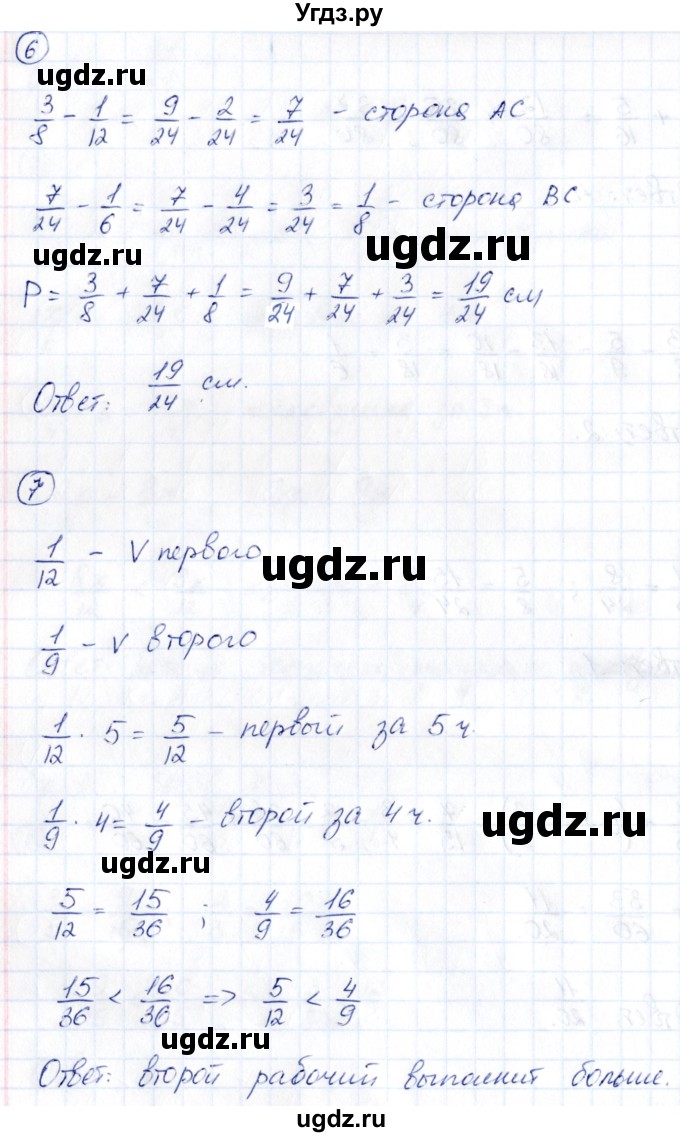 Угдз.ру
6
ugdz.ru
3/8 - 1/12 = 9/24 - 2/24 = 7/24 - сторона AC
ugdz.ru
7/24 - 1/6 = 7/24 - 4/24 = 3/24 = 1/8 - сторона BC
ugdz.ru
ugdz.ru
P = 3/8 + 7/24 + 1/8 = 9/24 + 7/24 + 3/24 = 19/24 см
Ответ: 19/24 см.
ugdz.ru
7
1/12 - V первого
ugdz.ru
1/9 - V второго
ugdz.ru
1/12 · 5 = 5/12 - первый за 5 ч.
1/9 · 4 = 4/9 - второй за 4 ч.
ugdz.ru
ugdz.ru
5/12 = 15/36 ; 4/9 = 16/36
15/36 < 16/36 => 5/12 < 4/9
ugdz.ru
Ответ: второй рабочий выполнит больше.
ugdz.ru